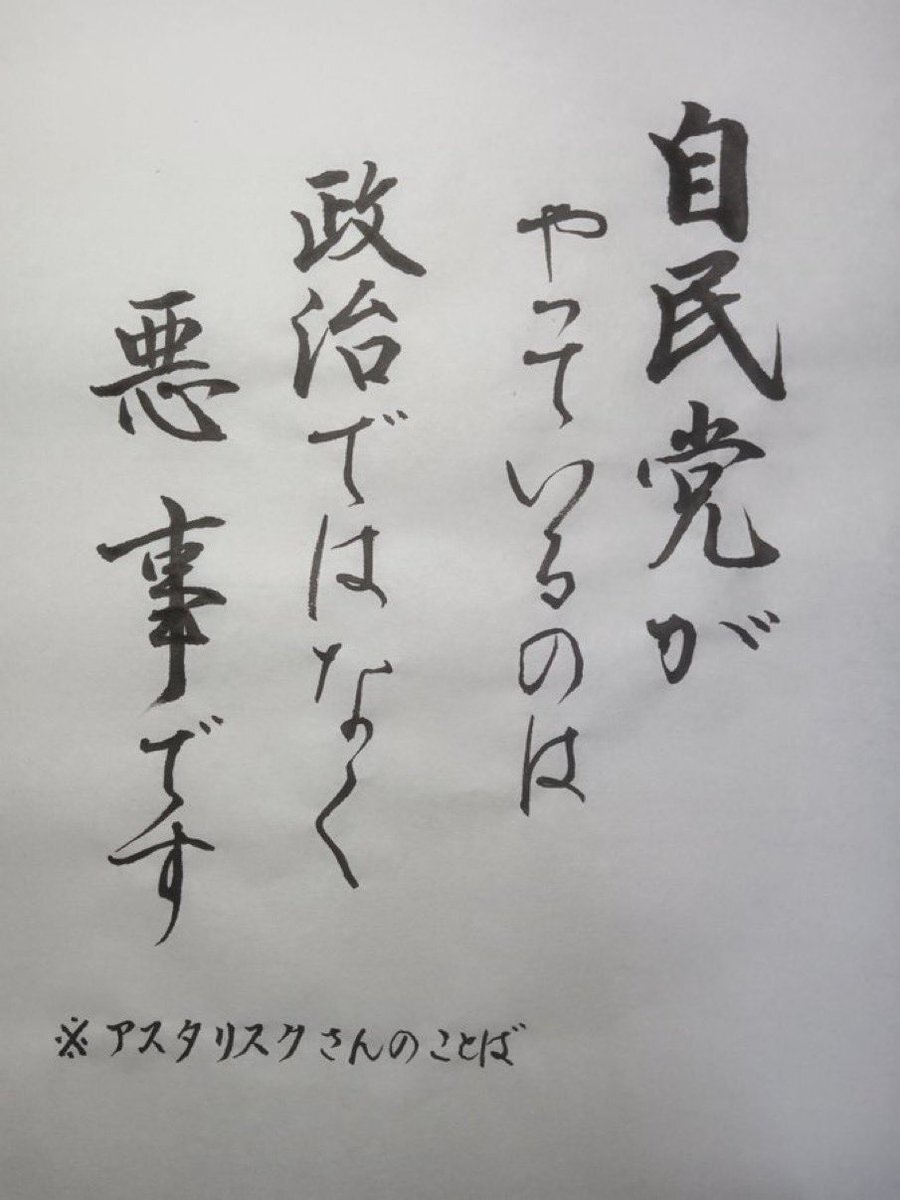 自民党が
やっているのは
政治ではなく
悪事です
※アスタリスクさんのことば